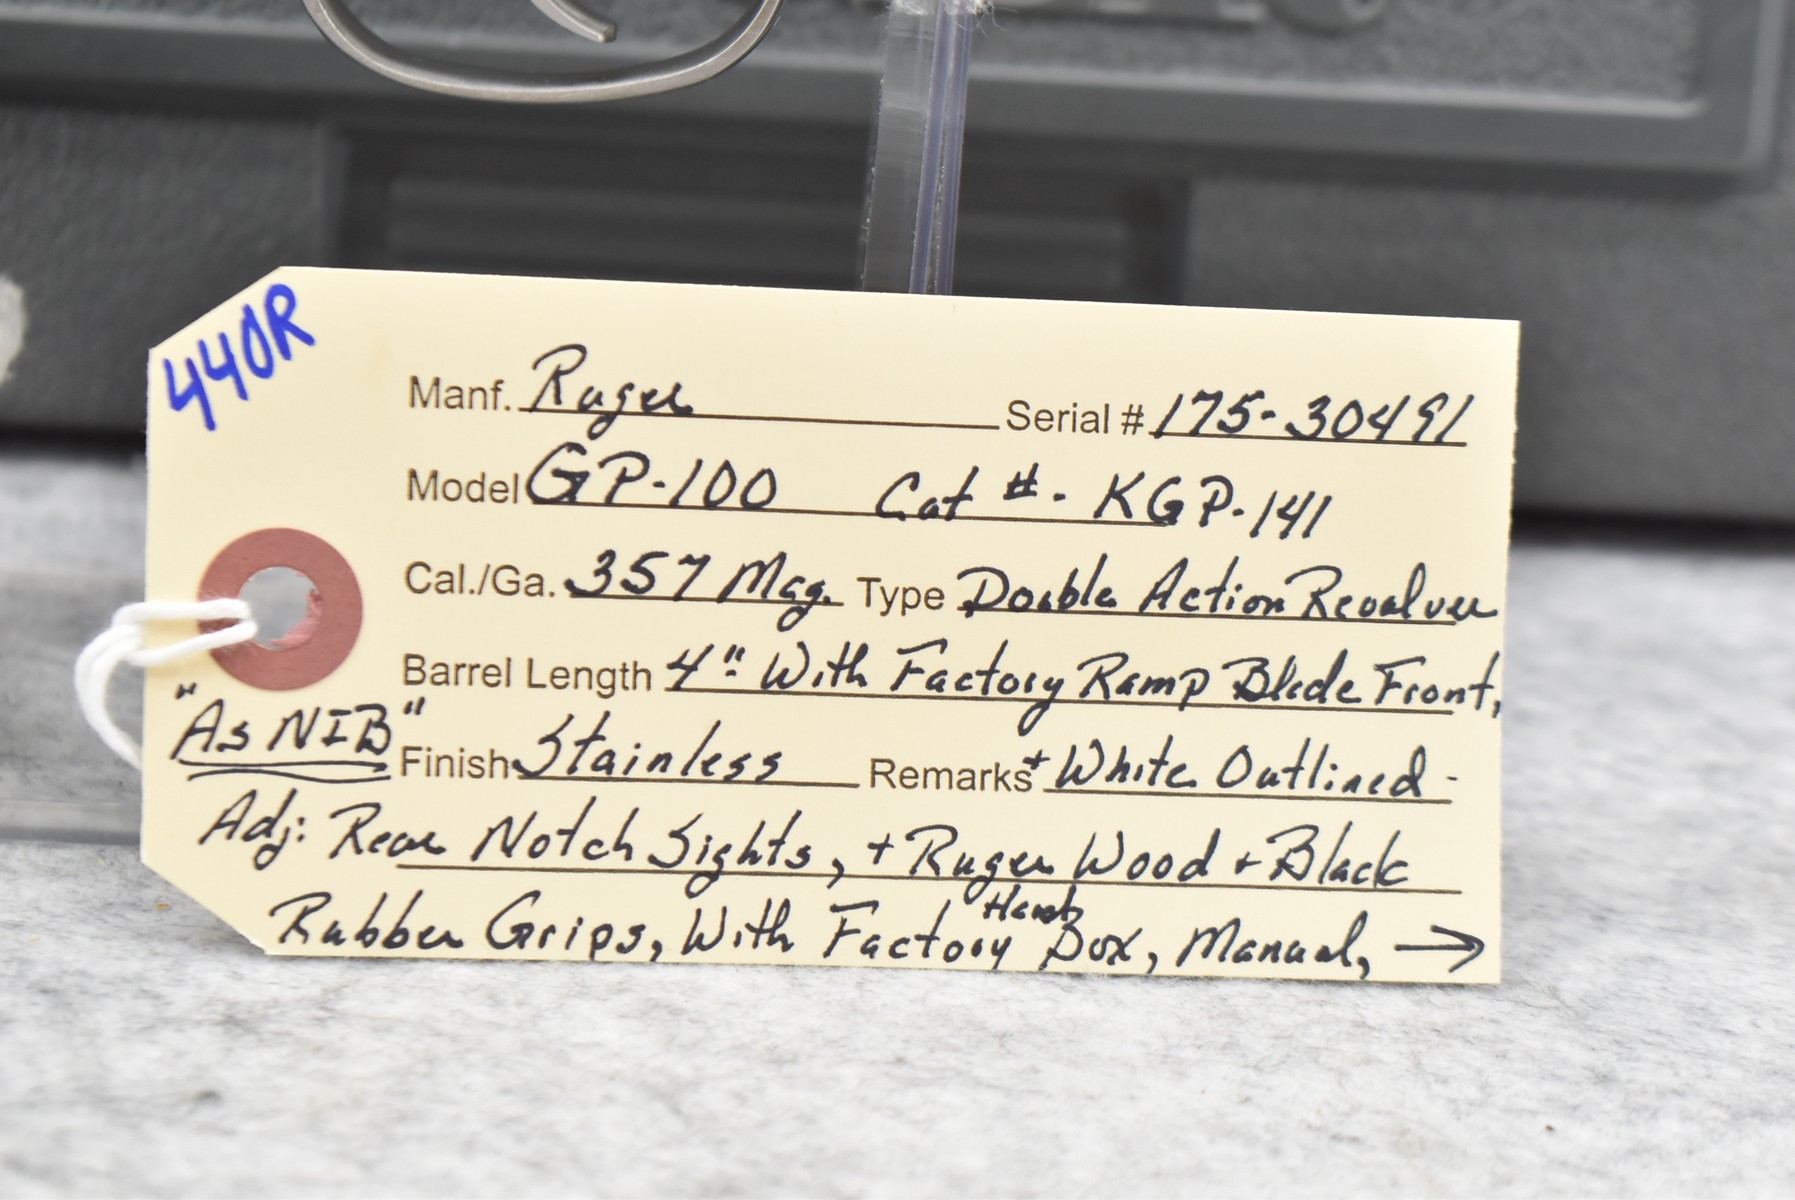 440R
Manf. Ruger Serial # 175-30491
Model GP-100 Cat #- KGP-141
Cal./Ga. 357 Mag. Type Double Action Revolver
Barrel Length 4" With Factory Ramp Blade Front,
"As NIB" Finish Stainless Remarks + White Outlined -
Adj. Rear Notch Sights, + Ruger Wood + Black
Rubber Grips, With Factory Hard Box, Manual, →